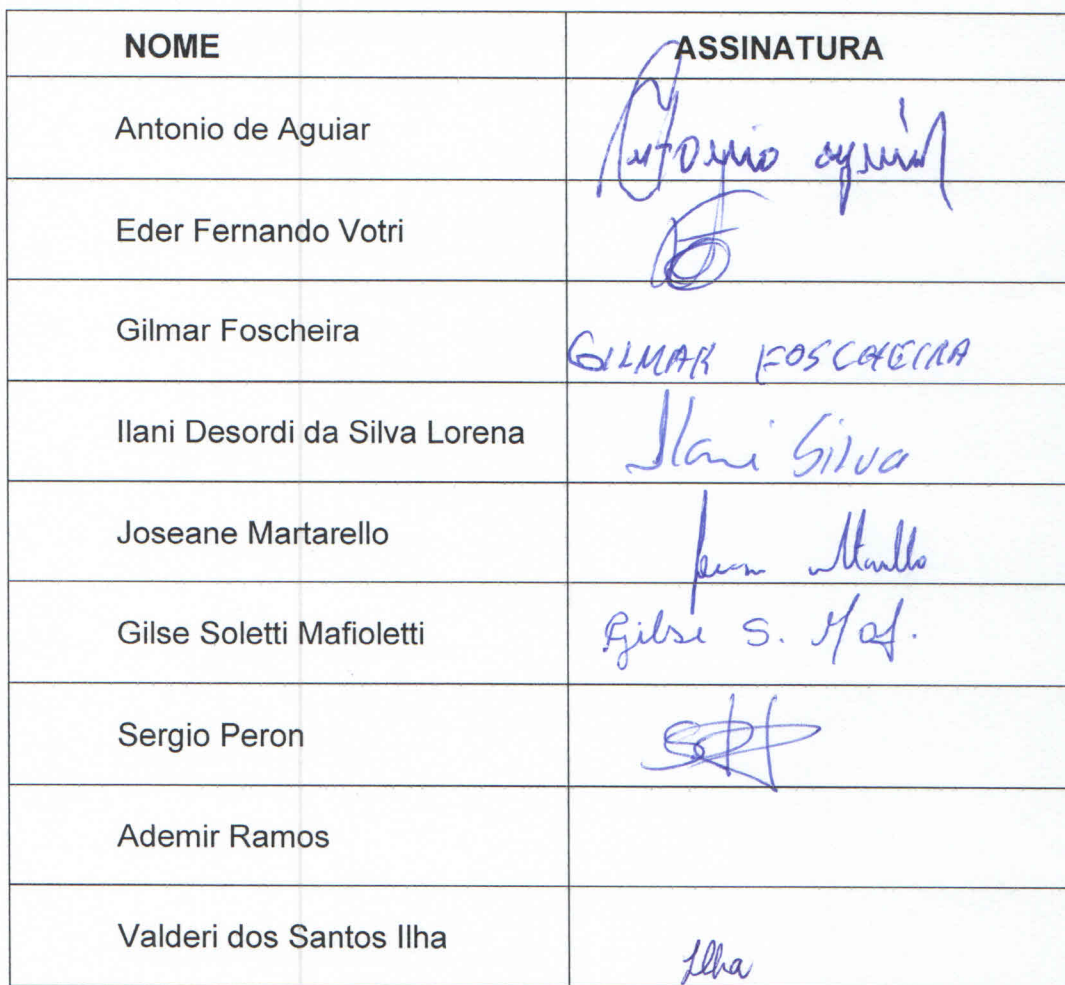 NOME ASSINATURA
Antonio de Aguiar Antonio Aguiar
Eder Fernando Votri
Gilmar Foscheira GILMAR FOSCHEIRA
Ilani Desordi da Silva Lorena Ilani Silva
Joseane Martarello
Gilse Soletti Mafioletti Gilse S. Maf.
Sergio Peron
Ademir Ramos
Valderi dos Santos Ilha Ilha